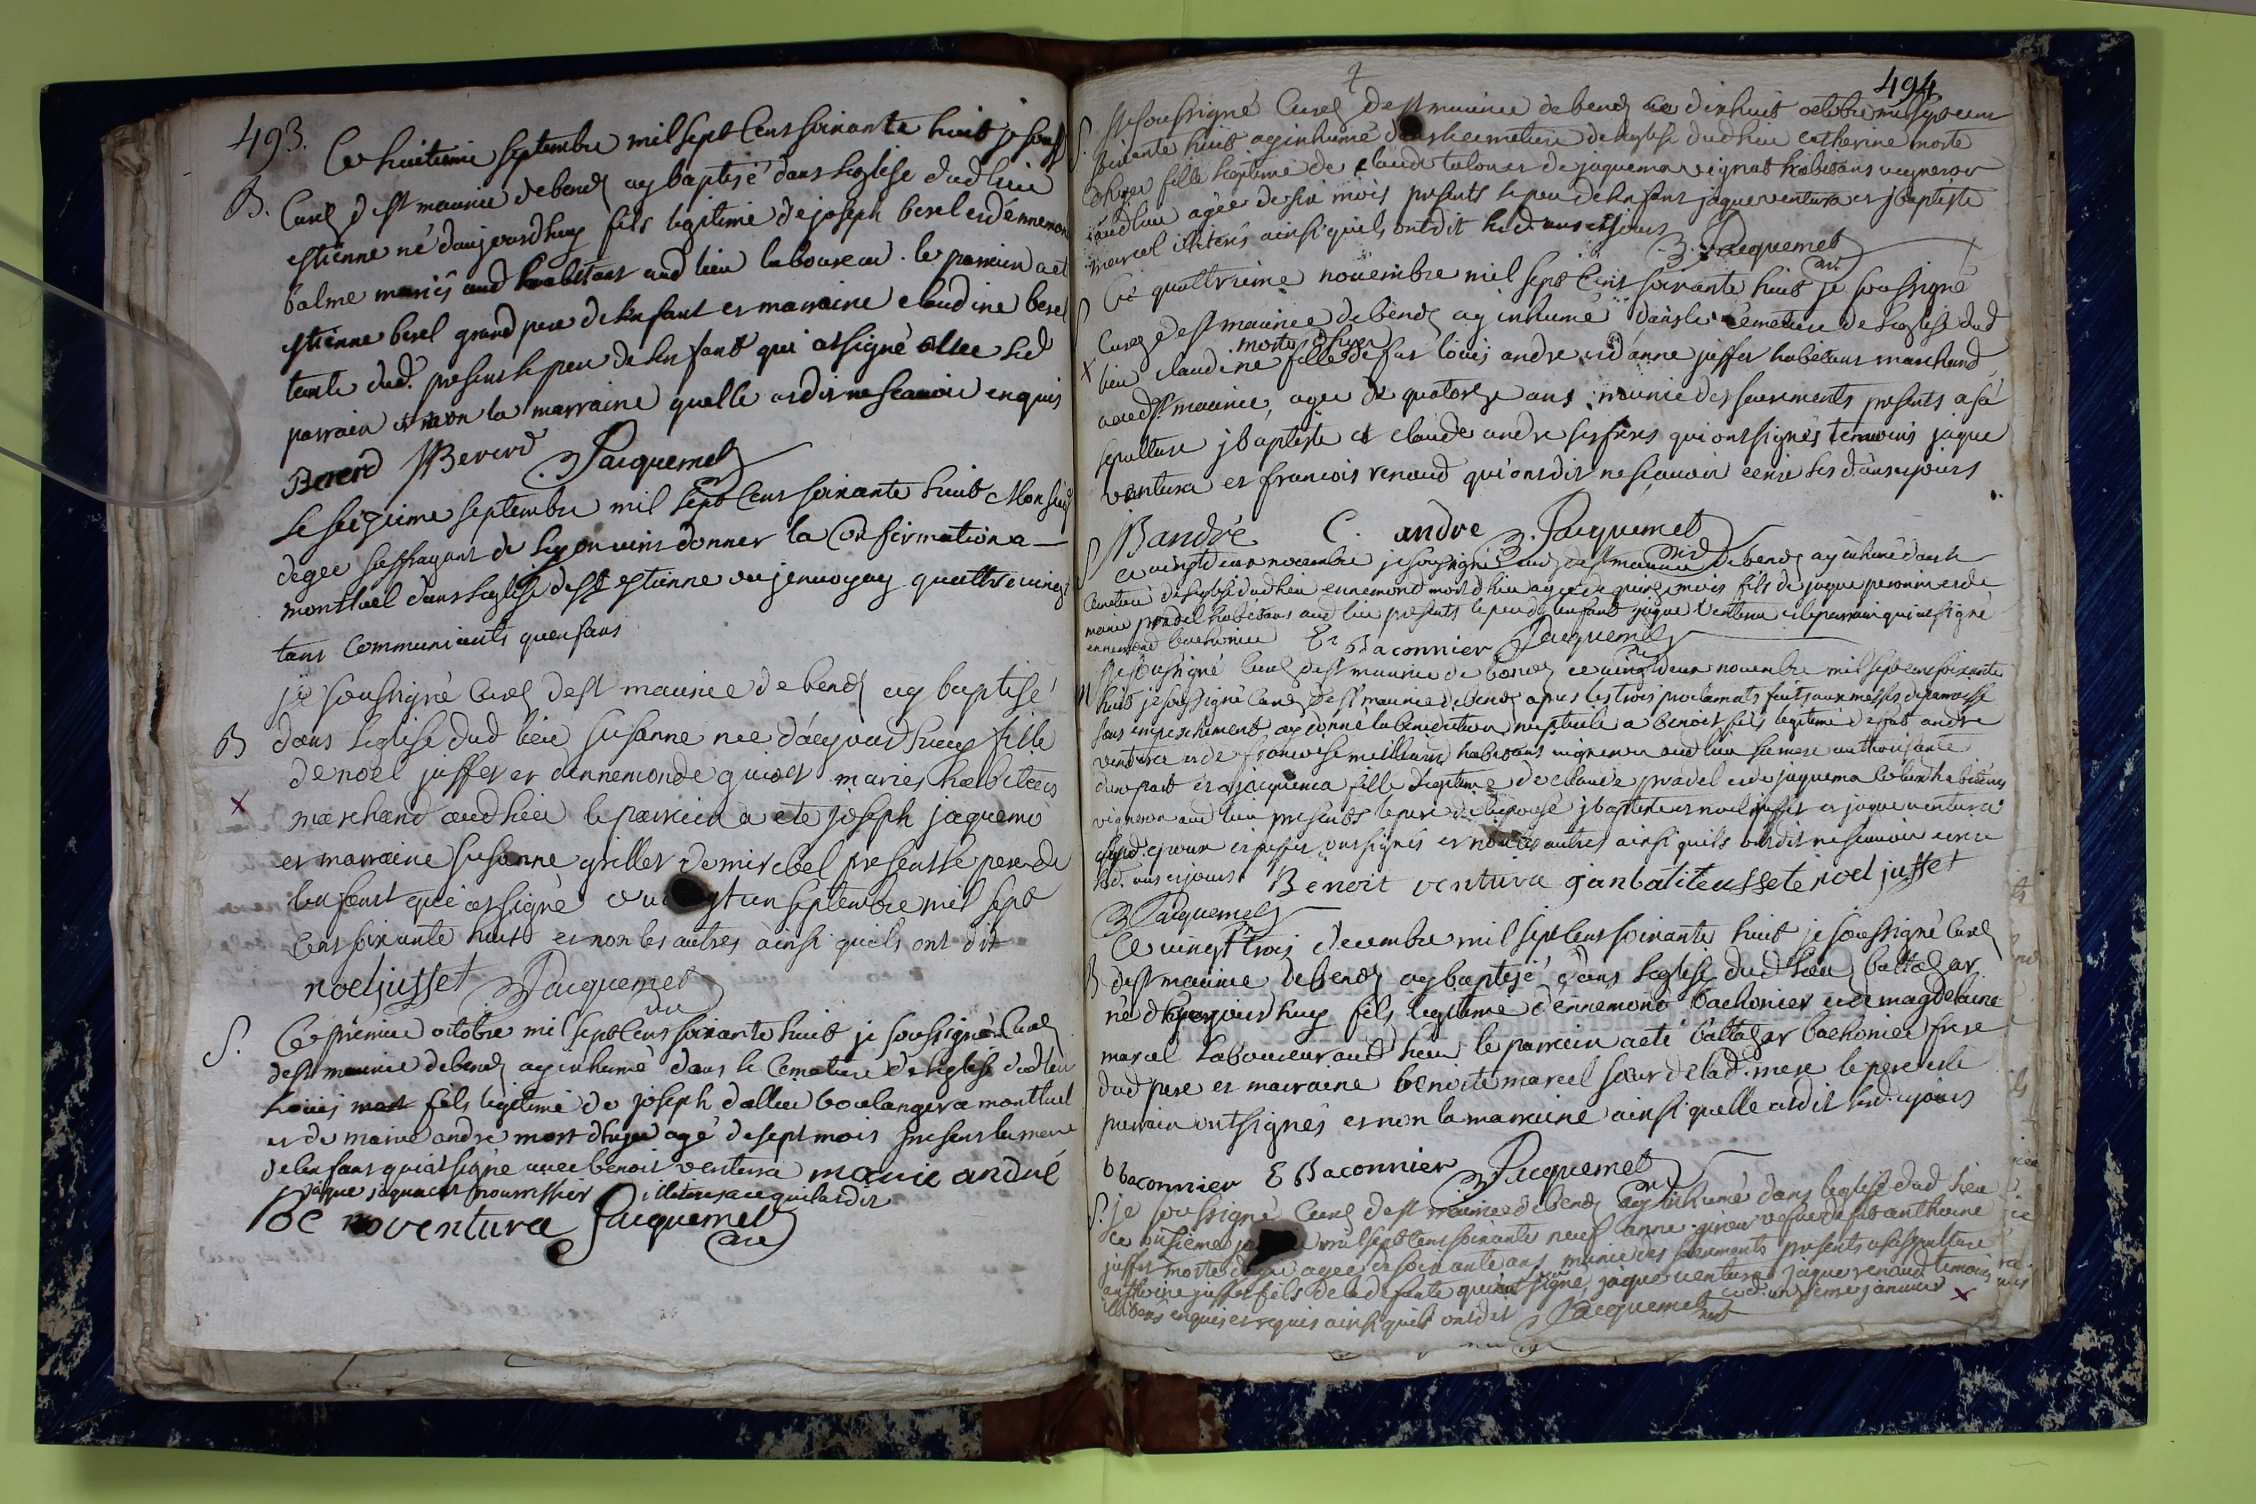 493.
Ce huitieme septembre mil sept cent soixante huit je souss
B. Curé de st maurice de benos ay baptisé dans leglise dud lieu
estienne né daujourdhuy fils legitime de joseph berel et dennemon
balme mariés aud habitans aud lieu laboureur. le parrain a et
estienne berel grand pere de lenfant et marraine claudine berel
tante dud. presents le pere de lenfant qui a signé avec led
parrain et non la marraine quelle a dit ne scavoir enquis
Bererd JBererd Jacquemet
Le seizieme septembre mil sept cent soixante huit Monsieur
deger suffragant de Lyon vint donner la Confirmation a
montluel dans leglise de st estienne ou jenvoyay quattre vingt
tant communiants quenfans
je soussigné Curé de st maurice de benos ay baptisé
B dans leglise dud lieu susanne née daujourdhuy fille
de noel juffet et dennemonde guiot mariés habitans
X marchand aud lieu le parrain a eté joseph jaquemo
et marraine susanne grillet de miribel presents le pere de
lenfant qui a signé ce vingt un septembre mil sept
cent soixante huit et non les autres ainsi quils ont dit
noel jusset Jacquemet curé
S. Ce premier octobre mil sept cent soixante huit je soussigné Curé
de st maurice de benos ay inhumé dans le cemetiere de leglise dud lieu
Louis mort fils legitime de joseph dallier boulanger a montluel
et de marie andre mort dhyer agé de sept mois presents la mere
de lenfant qui a signé avec benoit ventura marie andré
jaque jaquemet nourrissier illiteré a ce quil a dit
Be noventura Jacquemet curé
494
Je soussigné Curé de st maurice de benos ce dixhuit octobre mil sept cent
S. soixante huit ay inhumé dans le cemetiere de leglise dud lieu catherine morte
dhyer fille legitime de claude talon et de jaquema vignat habitans vigneron
aud lieu agée de six mois presents le pere de lenfant jaque ventura et jbaptiste
marcel illiterés ainsi quils ont dit led. an et jours Jacquemet curé
Ce quattrieme novembre mil sept cent soixante huit je soussigné
S Curé de st maurice de benos ay inhumé dans le cemetiere de leglise dud
morte dhyer
X lieu claudine fille de fut louis andre et danne juffet habitans marchand
aud st maurice, agée de quatorze ans munie des sacrements presents a sa
sepulture jbaptiste et claude andre ses freres qui ont signés temoins jaque
ventura et francois renaud qui ont dit ne scavoir ecrire les d. an et jours
JBandré C. andre Jacquemet curé
S Ce vingt deux novembre je soussigné curé de st maurice de benos ay inhumé dans le
Cemetiere de leglise dud lieu ennemond mort dhier agé de quinze mois fils de jaque peronin et de
marie pradel habitans aud lieu presents le pere de lenfant jaque ventura et le parrain qui a signé
ennemond bachonier E Baconnier Jacquemet curé
Je soussigné Curé de st maurice de benos ce vingt deux novembre mil sept cent soixante
M huit je soussigné Curé de st maurice de benos apres les trois proclamats faits aux messes de paroisse
sans empeschement ay donné la benediction nuptiale a benoit fils legitime de fut andre
ventura et de francoise meilleur habitans vigneron aud lieu sa mere authorisante
dune part et a jaquema fille legitime de claude pradel et de jaquema colin habitans
vigneron aud lieu presents le pere de lepouse jbaptiste et noel juffet et jaque ventura
led. epoux et juffet ont signés et non les autres ainsi quils ont dit ne scavoir ecrire
led. an et jours Benoit ventura janbatite usset e noel jusset
Jacquemet
Ce vingt trois decembre mil sept cent soixante huit je soussigné Curé
B de st maurice de benos ay baptisé dans leglise dud lieu baltazar
né daujourdhuy fils legitime dennemond bachonier et de magdelaine
marcel laboureur aud lieu le parrain a eté baltazar bachonier frere
dud pere et marraine benoite marcel soeur de lad. mere le pere et le
parrain ont signés et non la marraine ainsi quelle a dit led. jours
b baconnier E Baconnier Jacquemet curé
S. je soussigné Curé de st maurice de benos ay inhumé dans leglise dud lieu
ce onsieme mil sept cent soixante neuf anne vefve de fut anthoine
juffet morte agée de soixante ans munie des sacrements presents a sa sepulture
anthoine juffet fils de la defunte qui a signé, jaque ventura jaque renaud temoins
enquis et requis ainsi quils ont dit Jacquemet curé led. onzieme janvier X